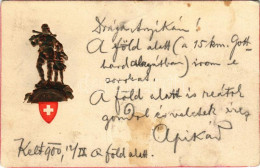 Drága Anyikám!
A föld alatt (a 15 km. Gott-
hard alagútban) irom e
sorokat.
A föld alatt is reátok
gondol es veletek érez
Apikád
Kelt 900, 12/IX A föld alatt.